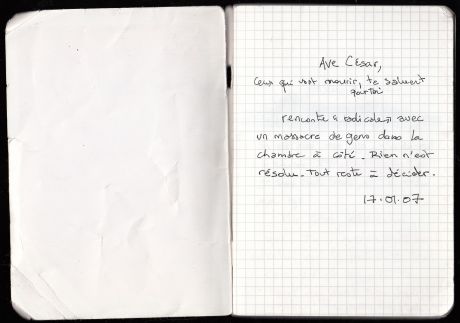 Ave César,
Ceux qui vont mourir, te saluent
rencontre radicale avec
un massacre de gens dans la
chambre à côté. Rien n'est
résolu. Tout reste à décider.
17.01.07